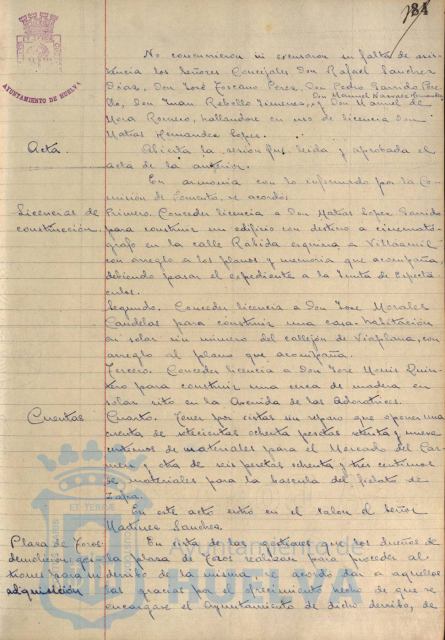 84
AYUNTAMIENTO DE HUELVA
No concurrieron ni excusaron su falta de asis-
tencia los Señores Concejales Don Rafael Sanchez
Diaz, Don José Toscano Perez, Don Pedro Garrido Pere-
Don Manuel Narvaez
llo, Don Juan Rebollo Jimenez, y Don Manuel de
Mora Romero, hallandose en uso de licencia Don
Matias Hernandez Lopez.
Acta.
Abierta la sesión fué leida y aprobada el
acta de la anterior.
En armonia con lo informado por la Co-
mision de Fomento, se acordó:
Licencias de
construcción.
Primero. Conceder licencia a Don Matias Lopez Garrido
para construir un edificio con destino a cinemató-
grafo en la calle Rabida esquina a Villaamil
con arreglo a los planos y memoria que acompaña,
debiendo pasar el expediente a la Junta de Espectá-
culos.
Segundo. Conceder licencia a Don José Morales
Candelas para construir una casa-habitación
en solar sin numero del callejon de Viaplana, con
arreglo al plano que acompaña.
Tercero. Conceder licencia a Don José Monis Quin-
tero para construir una cerca de madera en
solar sito en la Avenida de las Adoratrices.
Cuentas
Cuarto. Tener por vistas sin reparo que oponer una
cuenta de setecientas ochenta pesetas setenta y nueve
centimos de materiales para el Mercado del Car-
men y otra de seis pesetas ochenta y tres centimos
de materiales para la bascula del fielato de
Zafra.
En este acto entró en el Salon el Señor
Martinez Sanchez.
Plaza de Toros:
demolición; ges-
tiones para su
adquisición
En vista de las gestiones que los dueños de
la plaza de Toros realizan para proceder al
derribo de la misma, se acordó dar a aquellos
las gracias por el ofrecimiento hecho de que se
encargue el Ayuntamiento de dicho derribo, de
Ayuntamiento de
HUELVA